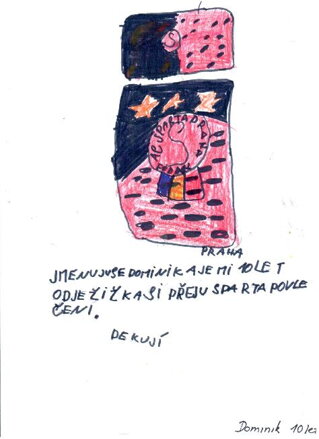 S
AC SPARTA PRAHA
PRAHA
JMENUJU SE DOMINIK A JE MI 10 LET
OD JEŽIŽKA SI PŘEJU SPARTA POVLE
ČENI.
DEKUJÍ
Dominik 10 let